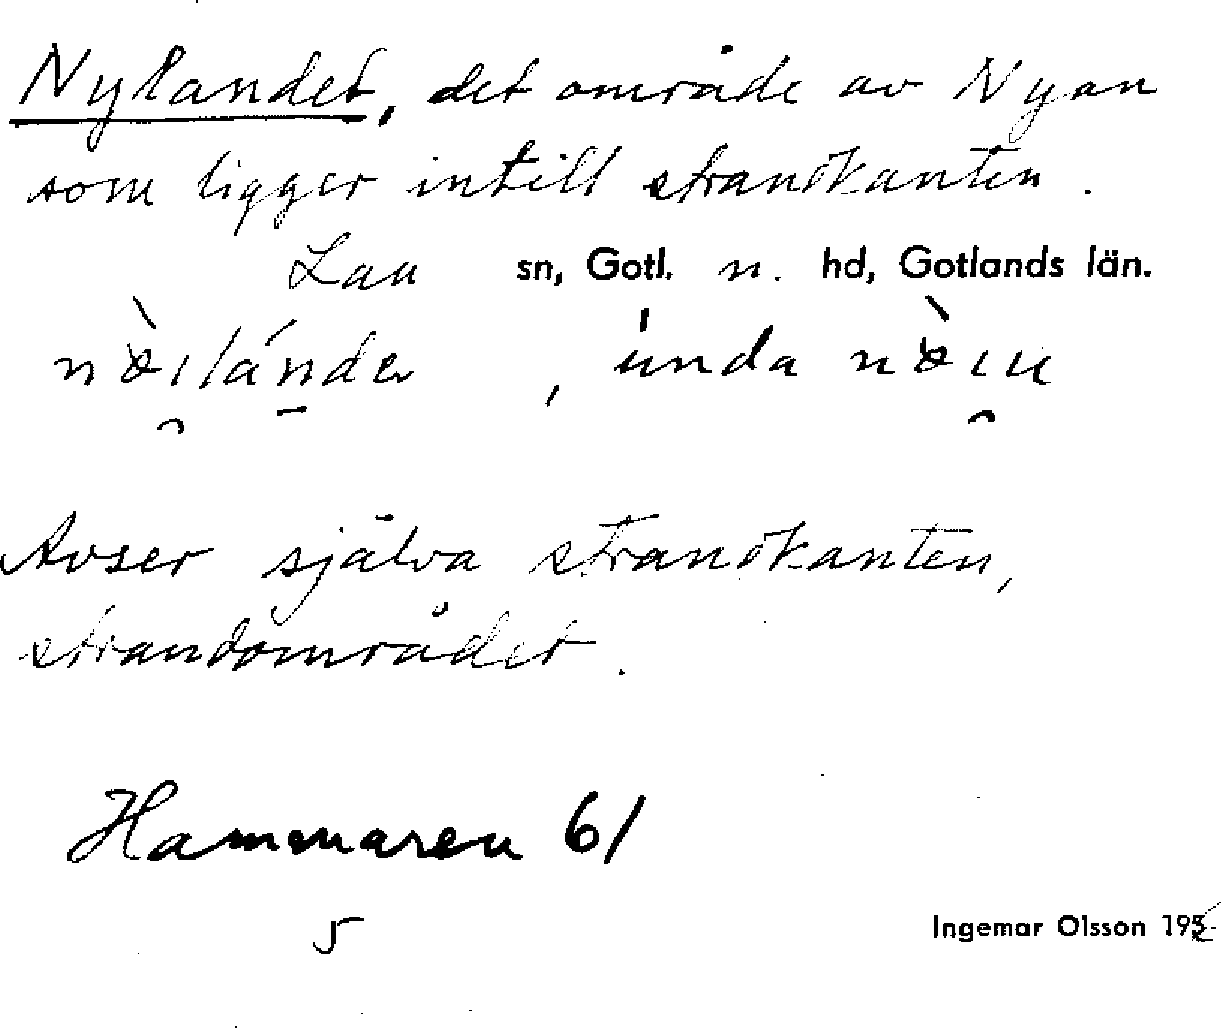 Nylandet, det område av Nyan
som ligger intill strandkanten.
Lau sn, Gotl. n. hd, Gotlands län.
, unda
Avser själva strandkanten,
strandområdet.
Hammaren 61
5
Ingemar Olsson 195